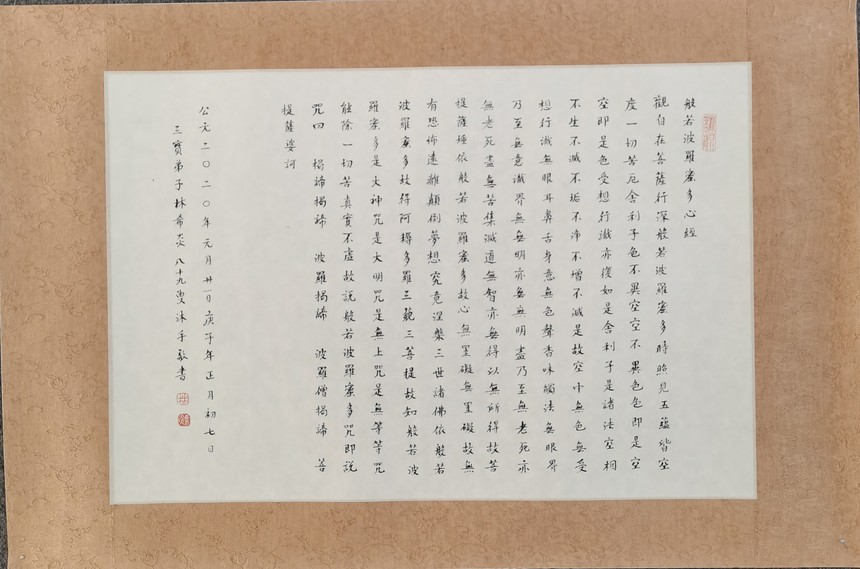 般若波羅蜜多心經
觀自在菩薩行深般若波羅蜜多時照見五蘊皆空
度一切苦厄舍利子色不異空空不異色色即是空
空即是色受想行識亦復如是舍利子是諸法空相
不生不滅不垢不淨不增不減是故空中無色無受
想行識無眼耳鼻舌身意無色聲香味觸法無眼界
乃至無意識界無無明亦無無明盡乃至無老死亦
無老死盡無苦集滅道無智亦無得以無所得故菩
提薩埵依般若波羅蜜多故心無罣礙無罣礙故無
有恐怖遠離顛倒夢想究竟涅槃三世諸佛依般若
波羅蜜多故得阿耨多羅三藐三菩提故知般若波
羅蜜多是大神咒是大明咒是無上咒是無等等咒
能除一切苦真實不虛故說般若波羅蜜多咒即說
咒曰 揭諦揭諦 波羅揭諦 波羅僧揭諦 菩
提薩婆訶
公元二〇二〇年元月廿一日庚子年正月初七日
三寶弟子林希炎八十九叟沐手敬書